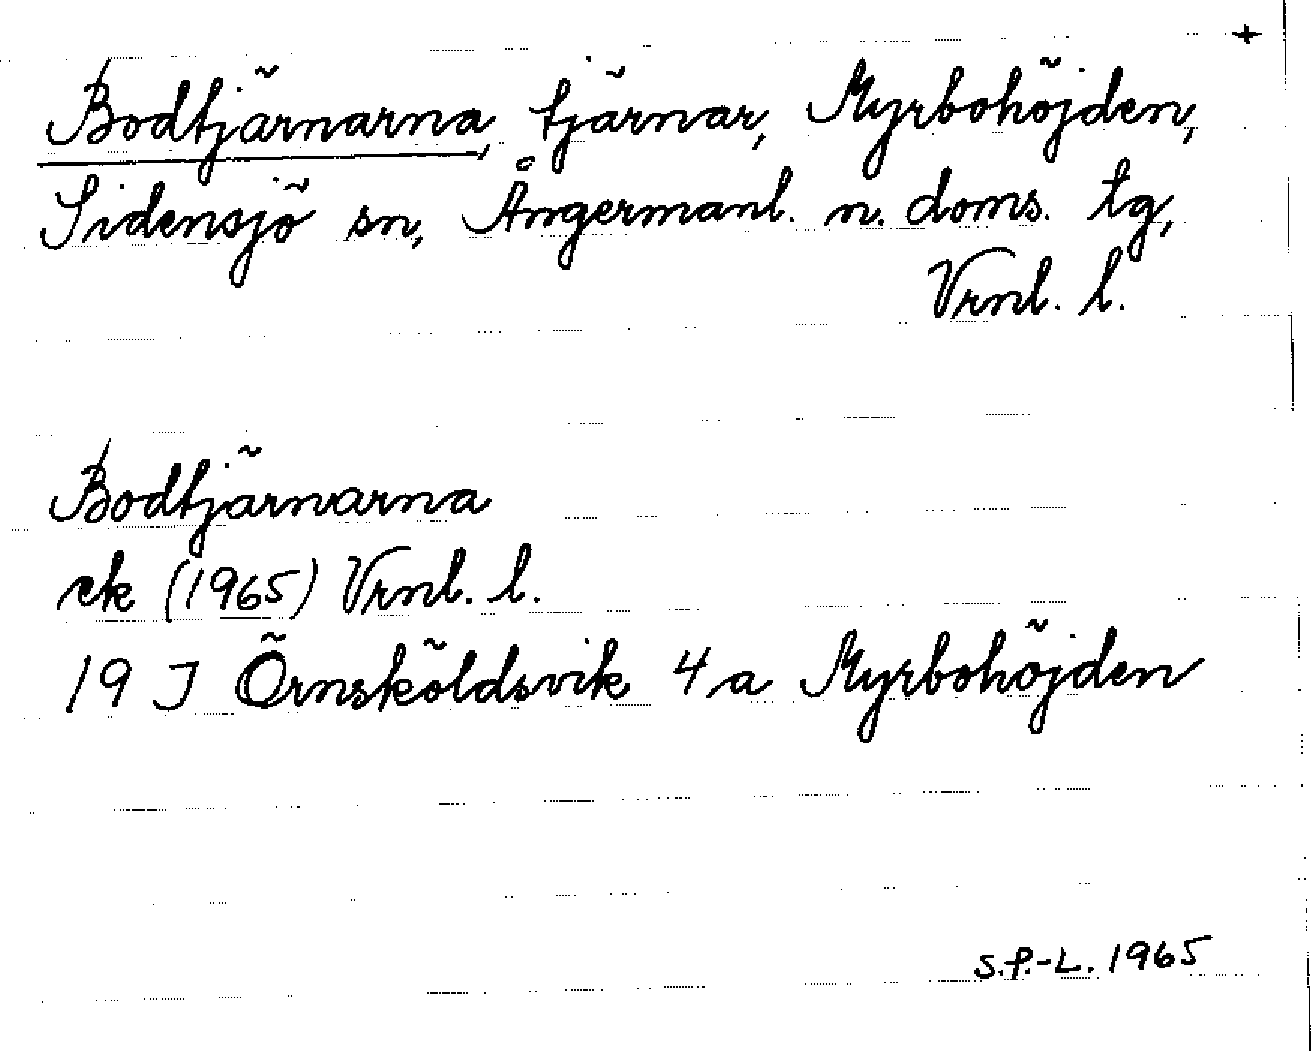 +
Bodtjärnarna, tjärnar, Myrbohöjden,
Sidensjö sn, Ångermanl. n. doms. tg,
Vrnl. l.
Bodtjärnarna
ek (1965) Vrnl. l.
19 J Örnsköldsvik 4 a Myrbohöjden
S.P.-L. 1965